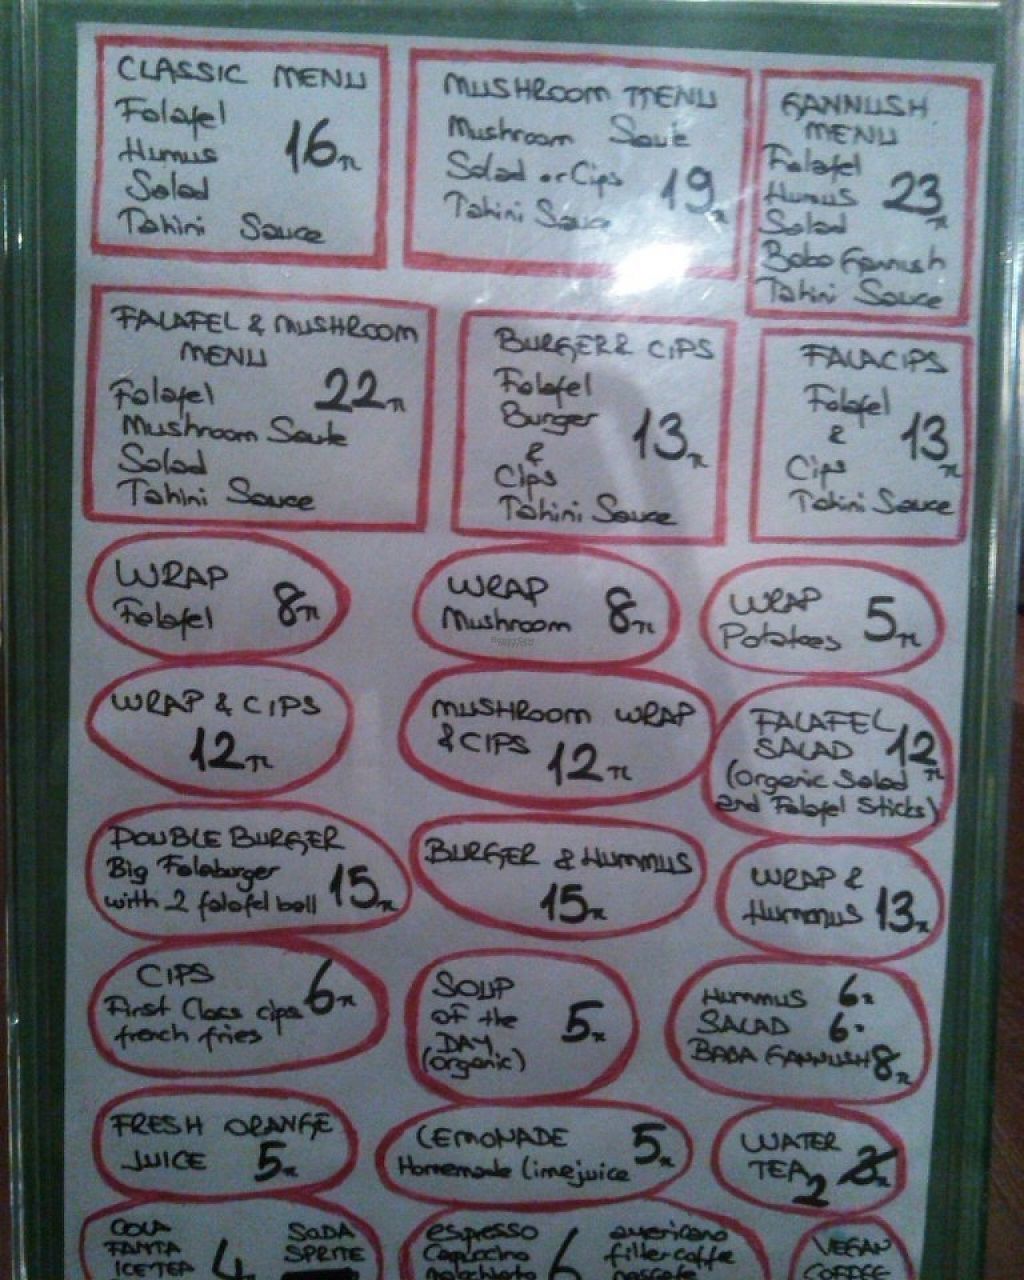 CLASSIC MENU
Falafel
Humus
Salad
Tahini Sauce
16 TL
MUSHROOM MENU
Mushroom Saute
Salad or Cips
Tahini Sauce
19 TL
GANNUSH
MENU
Falafel
Humus
Salad
Baba Gannush
Tahini Sauce
23 TL
FALAFEL & MUSHROOM
MENU
Falafel
Mushroom Saute
Salad
Tahini Sauce
22 TL
BURGER & CIPS
Falafel
Burger
&
Cips
Tahini Sauce
13 TL
FALACIPS
Falafel
&
Cips
Tahini Sauce
13 TL
WRAP
Falafel
8 TL
WRAP
Mushroom
8 TL
WRAP
Potatoes
5 TL
WRAP & CIPS
12 TL
MUSHROOM WRAP
& CIPS 12 TL
FALAFEL
SALAD 12 TL
(organic Salad
and Falafel Sticks)
DOUBLE BURGER
Big Falaburger
with 2 falafel ball
15 TL
BURGER & HUMMUS
15 TL
WRAP &
Hummus 13 TL
CIPS
First Class cips
french fries
6 TL
SOUP
of the
DAY
(organic)
5 TL
HUMMUS 6 TL
SALAD 6
BABA GANNUSH 8 TL
FRESH ORANGE
JUICE 5 TL
LEMONADE
Homemade limejuice
5 TL
WATER
TEA 2
COLA
FANTA
ICETEA
4
SODA
SPRITE
espresso
Cappuccino
macchiato
6
americano
filter coffee
nescafe
VEGAN
COFFEE